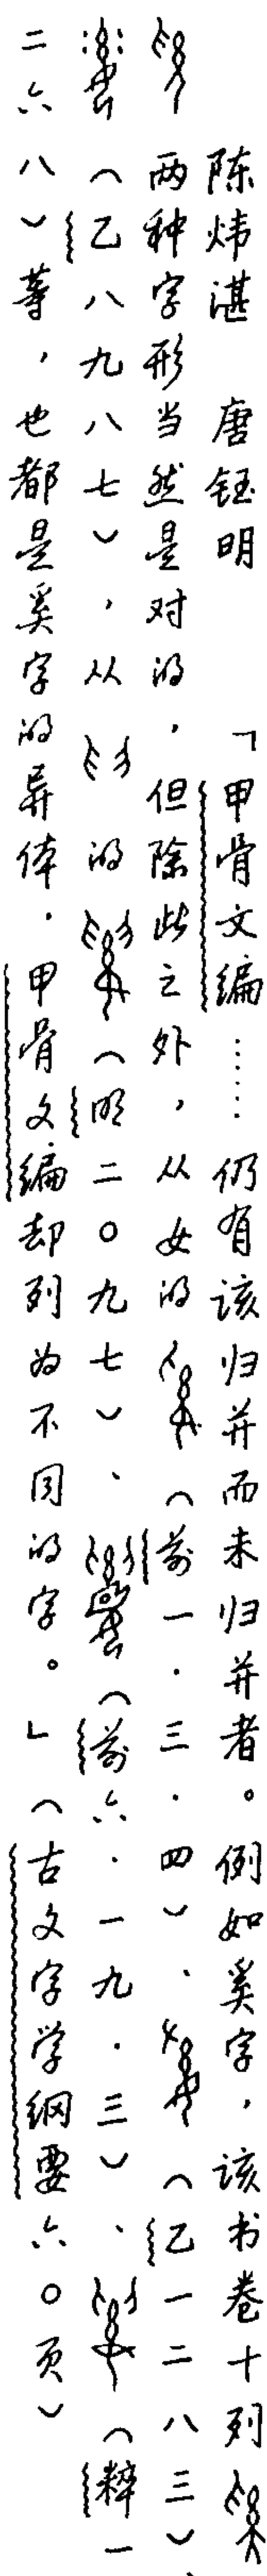 陈炜湛 唐钰明 「甲骨文编……仍有该归并而未归并者。例如奚字，该书卷十列
两种字形当然是对的，但除此之外，从女的（前一·三·四）、（乙一二八三）、
（乙八九八七），从的（明二〇九七）、（前六·一九·三）、（粹一
二六八）等，也都是奚字的异体．甲骨文编却列为不同的字。」（古文字学纲要六〇页）